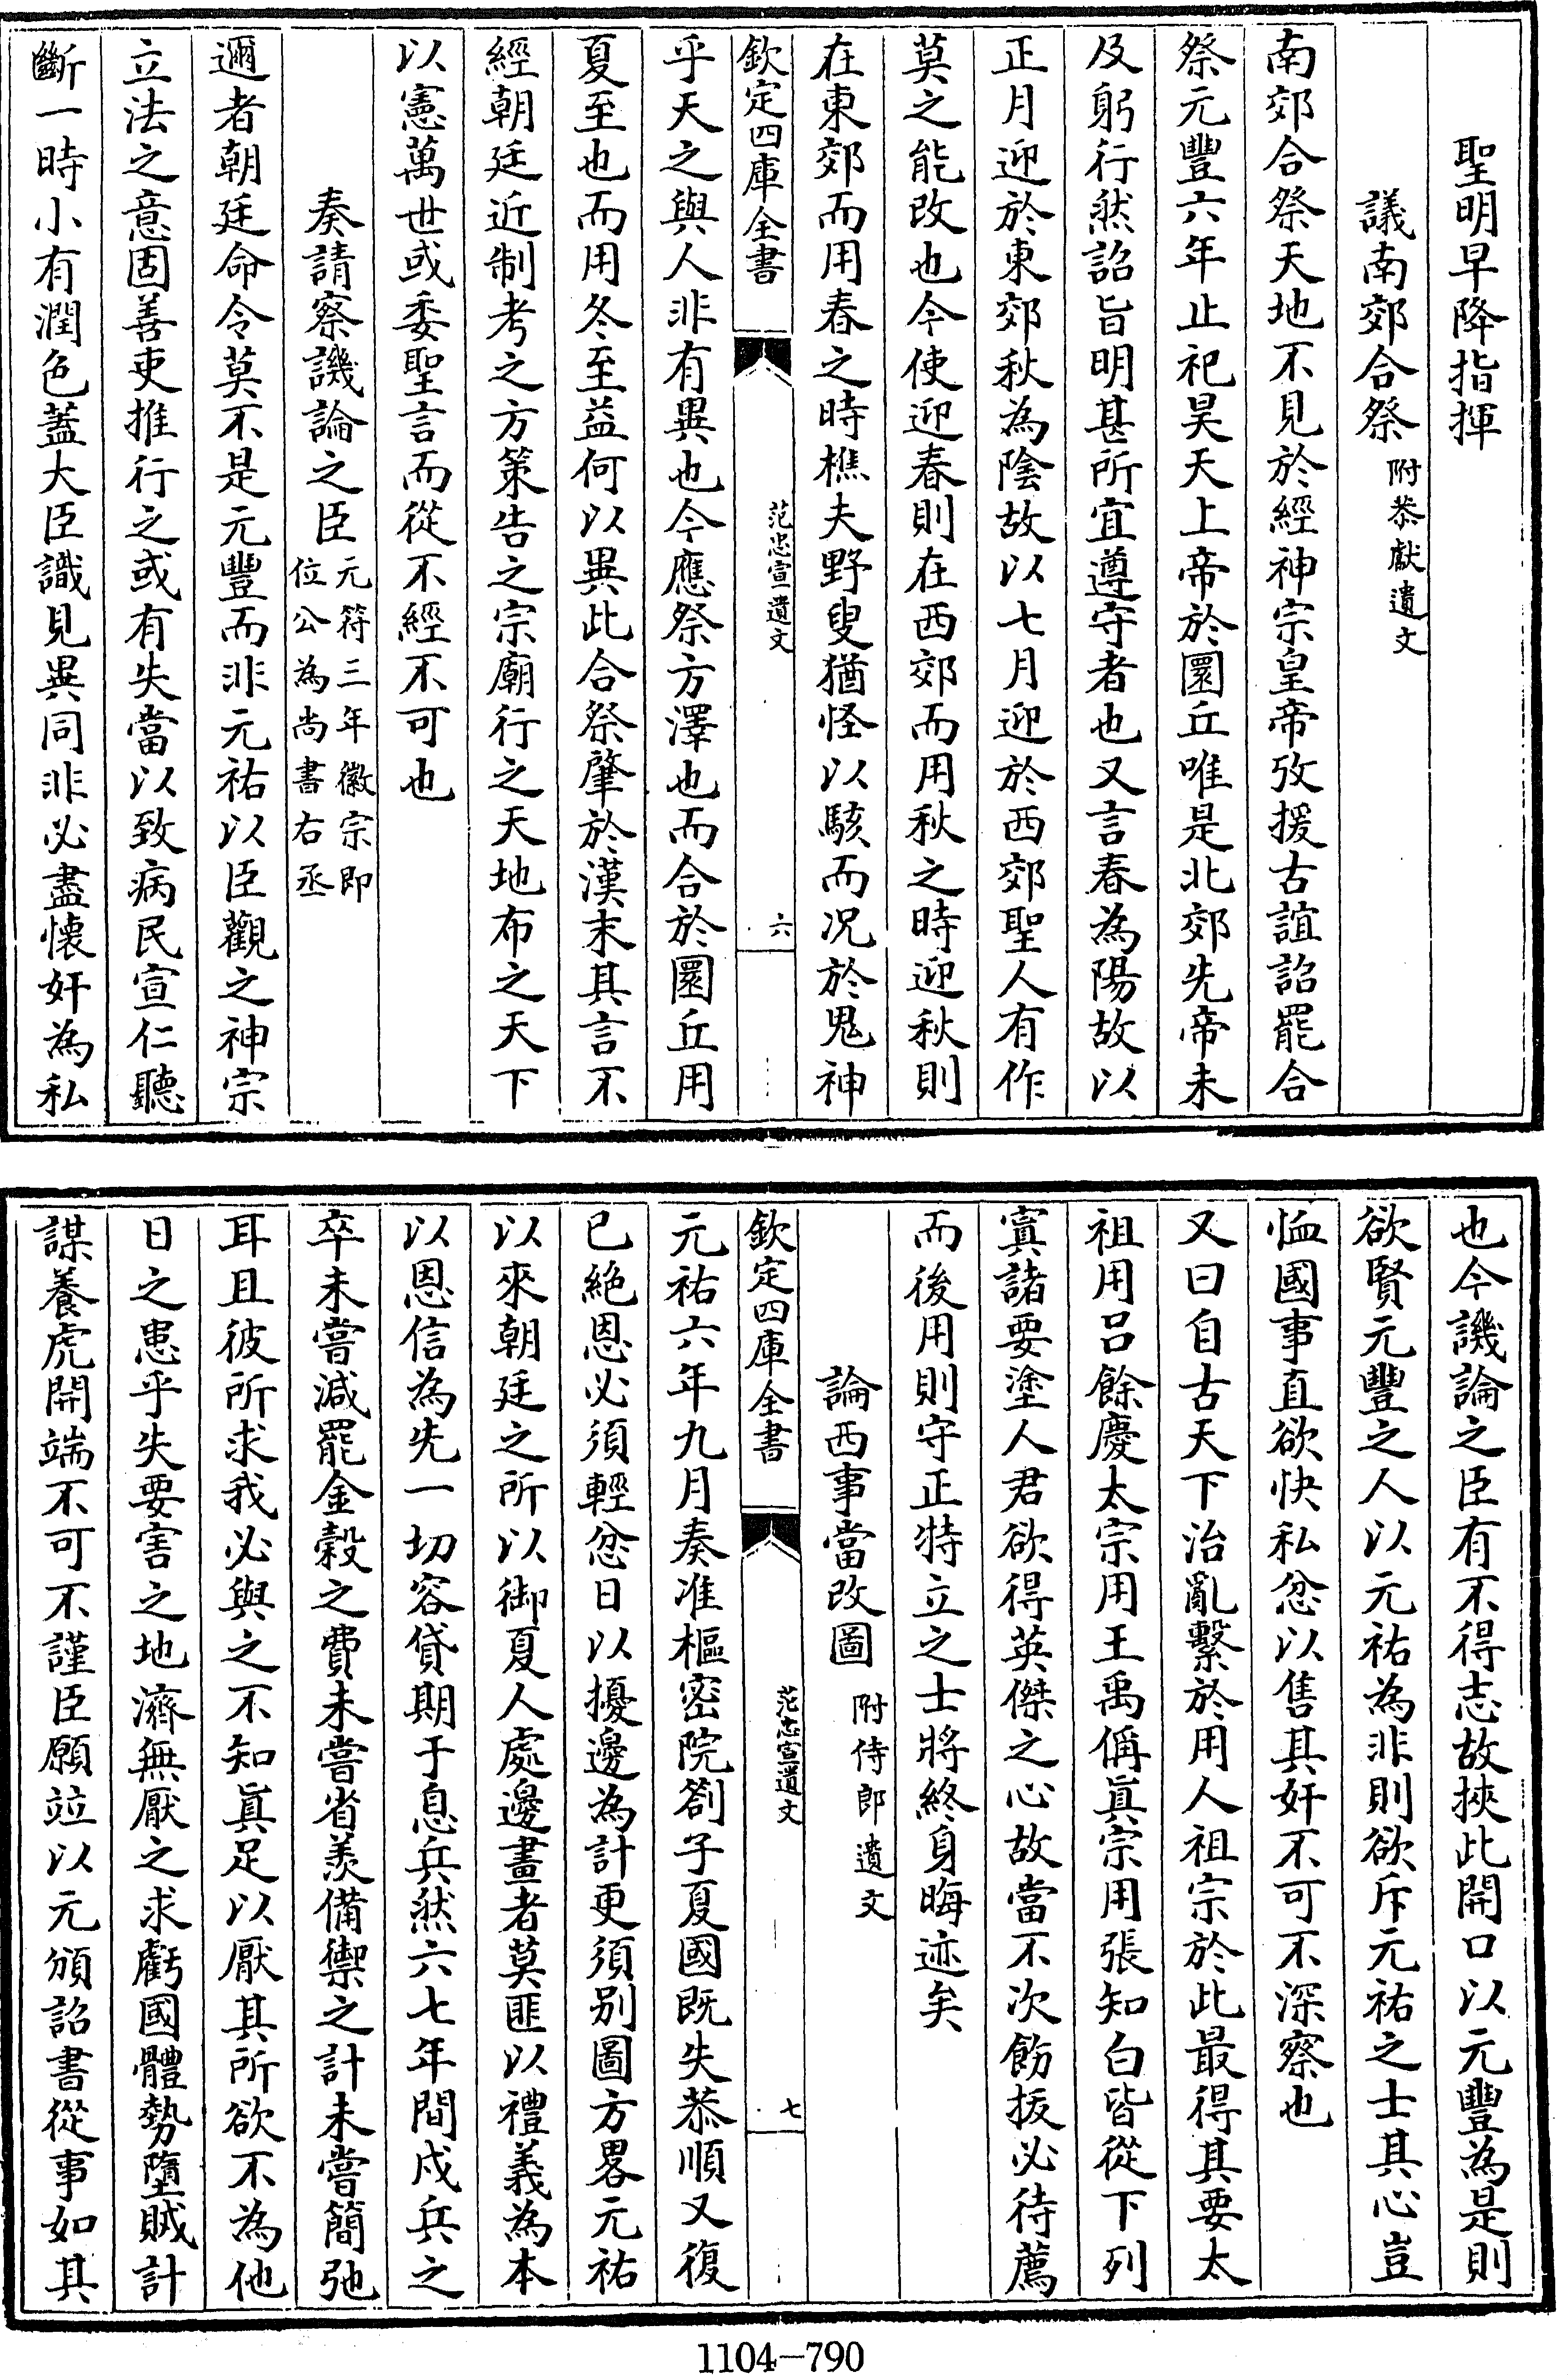 聖明早降指揮
議南郊合祭附恭獻遺文
南郊合祭天地不見於經神宗皇帝攷援古誼詔罷合
祭元豐六年止祀昊天上帝於圜丘唯是北郊先帝未
及躬行然詔旨明甚所宜遵守者也又言春為陽故以
正月迎於東郊秋為陰故以七月迎於西郊聖人有作
莫之能改也今使迎春則在西郊而用秋之時迎秋則
在東郊而用春之時樵夫野叟猶怪以駭而况於鬼神
欽定四庫全書
范忠宣遺文
六
乎天之與人非有異也今應祭方澤也而合於圜丘用
夏至也而用冬至益何以異此合祭肇於漢末其言不
經朝廷近制考之方策告之宗廟行之天地布之天下
以憲萬世或委聖言而從不經不可也
奏請察譏論之臣元符三年徽宗即位公為尚書右丞
邇者朝廷命令莫不是元豐而非元祐以臣觀之神宗
立法之意固善吏推行之或有失當以致病民宣仁聽
斷一時小有潤色蓋大臣識見異同非必盡懷奸為私
也今譏論之臣有不得志故挾此開口以元豐為是則
欲賢元豐之人以元祐為非則欲斥元祐之士其心豈
恤國事直欲快私忿以售其奸不可不深察也
又曰自古天下治亂繫於用人祖宗於此最得其要太
祖用呂餘慶太宗用王禹偁真宗用張知白皆從下列
寘諸要塗人君欲得英傑之心故當不次飭拔必待薦
而後用則守正特立之士將終身晦迹矣
論西事當改圖附侍郎遺文
欽定四庫全書
范忠宣遺文
七
元祐六年九月奏准樞密院劄子夏國既失恭順又復
已絕恩必須輕忿日以擾邊為計更須别圖方畧元祐
以來朝廷之所以御夏人處邊畫者莫匪以禮義為本
以恩信為先一切容貸期于息兵然六七年間戍兵之
卒未嘗減罷金穀之費未嘗省羨備禦之計未嘗簡弛
耳且彼所求我必與之不知真足以厭其所欲不為他
日之患乎失要害之地濟無厭之求虧國體勢墮賊計
謀養虎開端不可不謹臣願竝以元頒詔書從事如其
1104-790